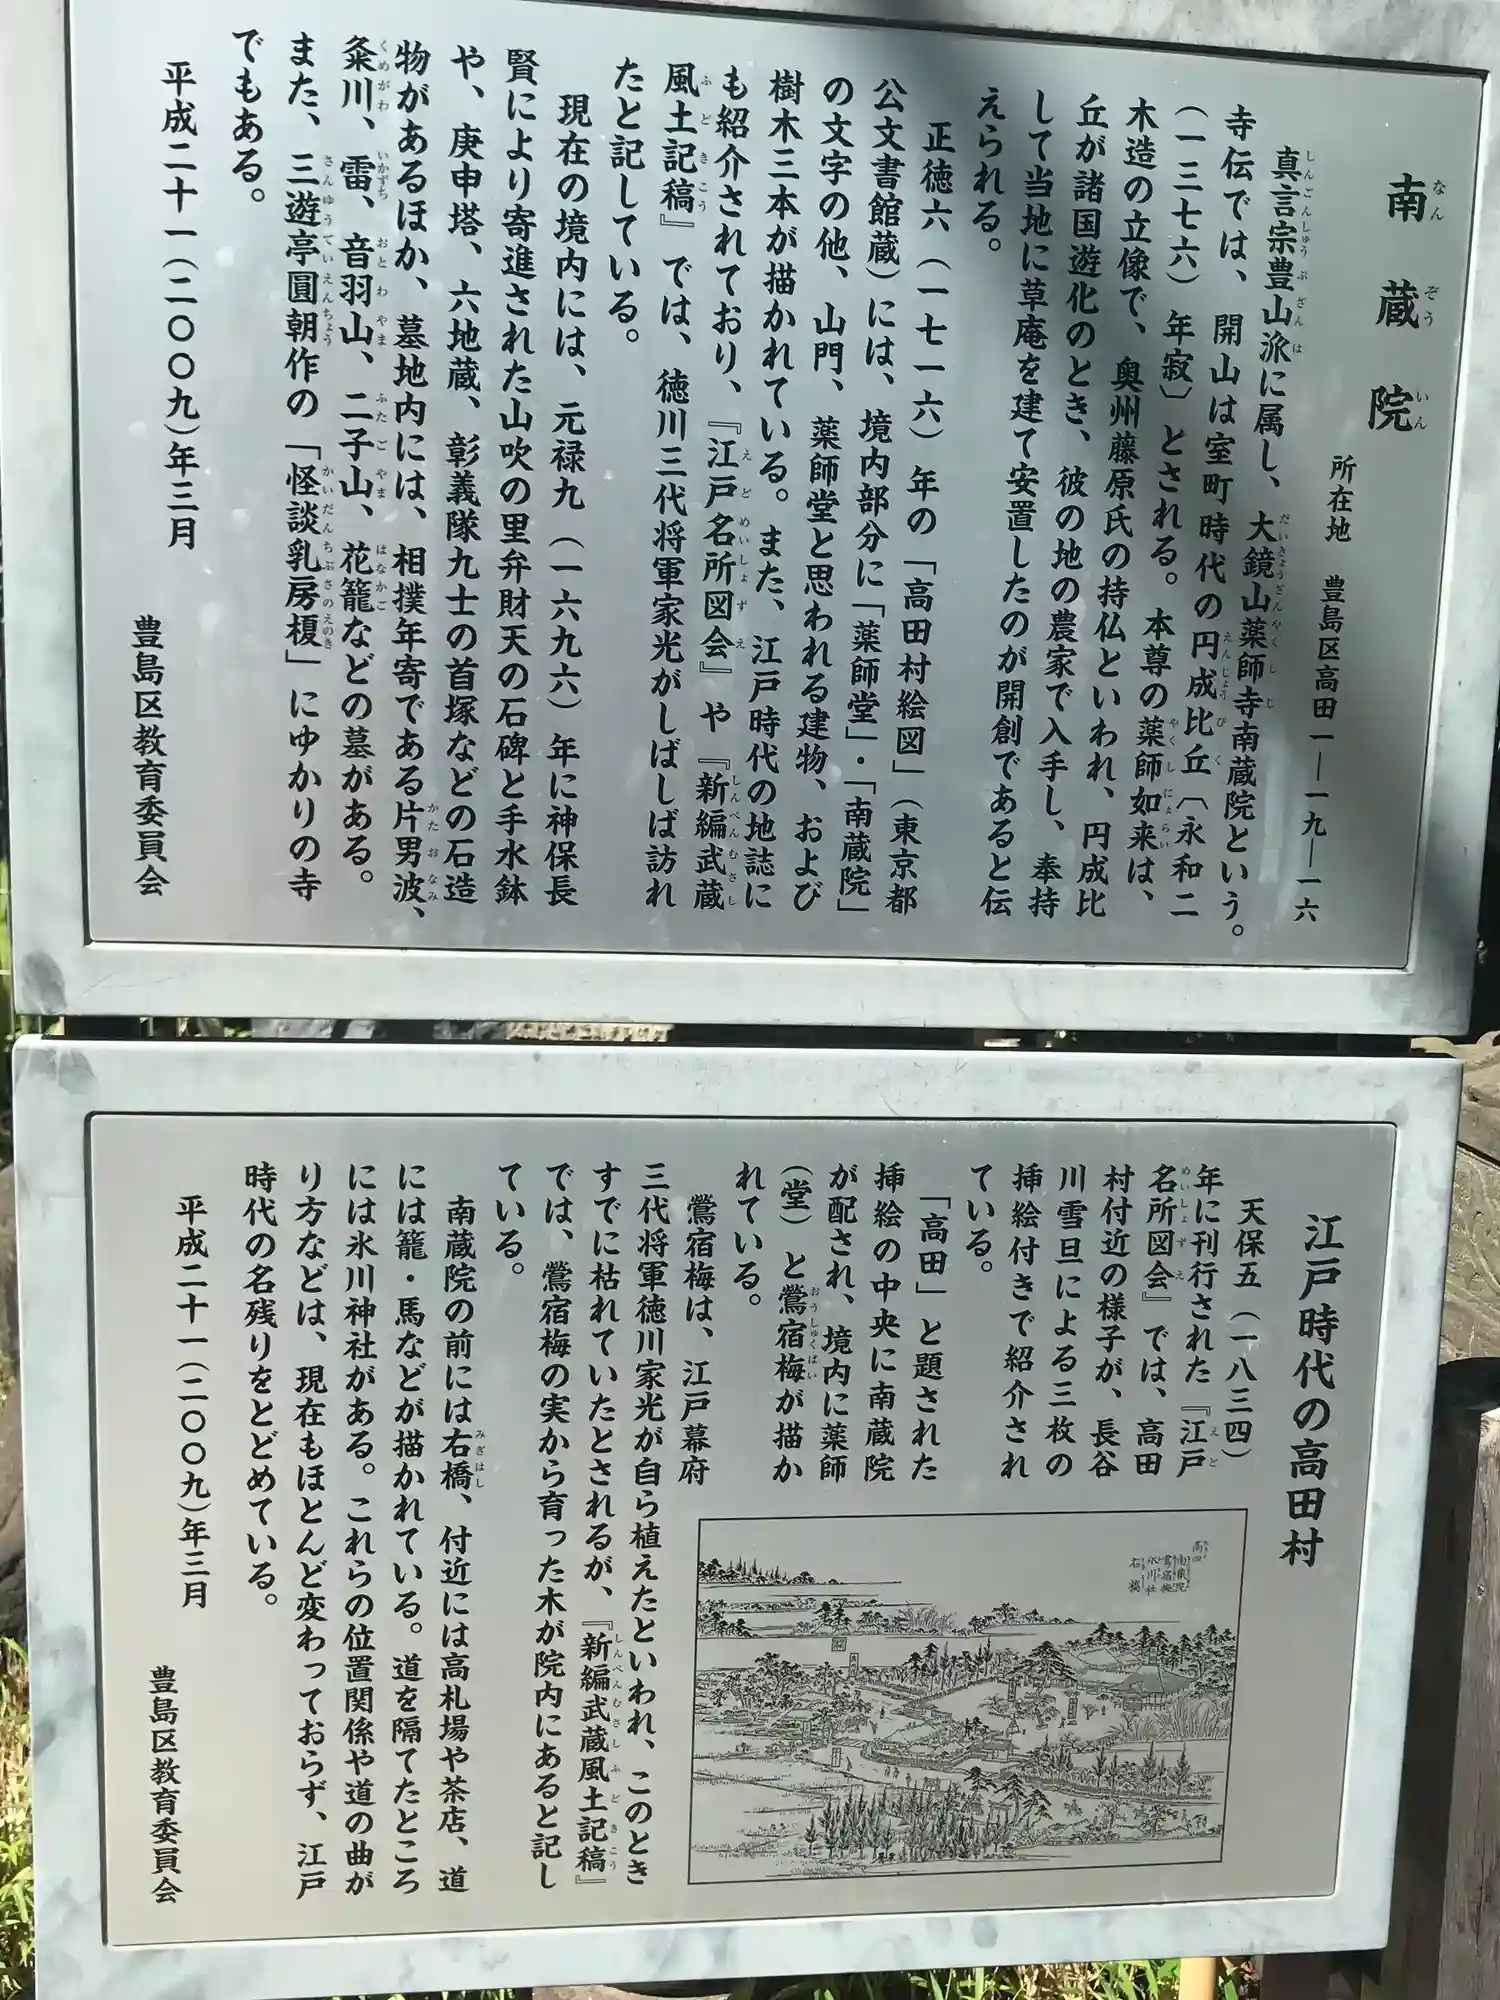 南蔵院
所在地 豊島区高田一―一九―一六
真言宗豊山派に属し、大鏡山薬師寺南蔵院という。
寺伝では、開山は室町時代の円成比丘〔永和二
(一三七六)年寂〕とされる。本尊の薬師如来は、
木造の立像で、奥州藤原氏の持仏といわれ、円成比
丘が諸国遊化のとき、彼の地の農家で入手し、奉持
して当地に草庵を建て安置したのが開創であると伝
えられる。
正徳六(一七一六)年の「高田村絵図」(東京都
公文書館蔵)には、境内部分に「薬師堂」・「南蔵院」
の文字の他、山門、薬師堂と思われる建物、および
樹木三本が描かれている。また、江戸時代の地誌に
も紹介されており、『江戸名所図会』や『新編武蔵
風土記稿』では、徳川三代将軍家光がしばしば訪れ
たと記している。
現在の境内には、元禄九(一六九六)年に神保長
賢により寄進された山吹の里弁財天の石碑と手水鉢
や、庚申塔、六地蔵、彰義隊九士の首塚などの石造
物があるほか、墓地内には、相撲年寄である片男波、
粂川、雷、音羽山、二子山、花籠などの墓がある。
また、三遊亭圓朝作の「怪談乳房榎」にゆかりの寺
でもある。
平成二十一(二〇〇九)年三月
豊島区教育委員会
江戸時代の高田村
天保五(一八三四)
年に刊行された『江戸
名所図会』では、高田
村付近の様子が、長谷
川雪旦による三枚の
挿絵付きで紹介され
ている。
「高田」と題された
挿絵の中央に南蔵院
が配され、境内に薬師
(堂)と鶯宿梅が描か
れている。
鶯宿梅は、江戸幕府
三代将軍徳川家光が自ら植えたといわれ、このとき
すでに枯れていたとされるが、『新編武蔵風土記稿』
では、鶯宿梅の実から育った木が院内にあると記し
ている。
南蔵院の前には右橋、付近には高札場や茶店、道
には籠・馬などが描かれている。道を隔てたところ
には氷川神社がある。これらの位置関係や道の曲が
り方などは、現在もほとんど変わっておらず、江戸
時代の名残りをとどめている。
平成二十一(二〇〇九)年三月
豊島区教育委員会
高田
南蔵院
鶯宿梅
氷川社
右橋